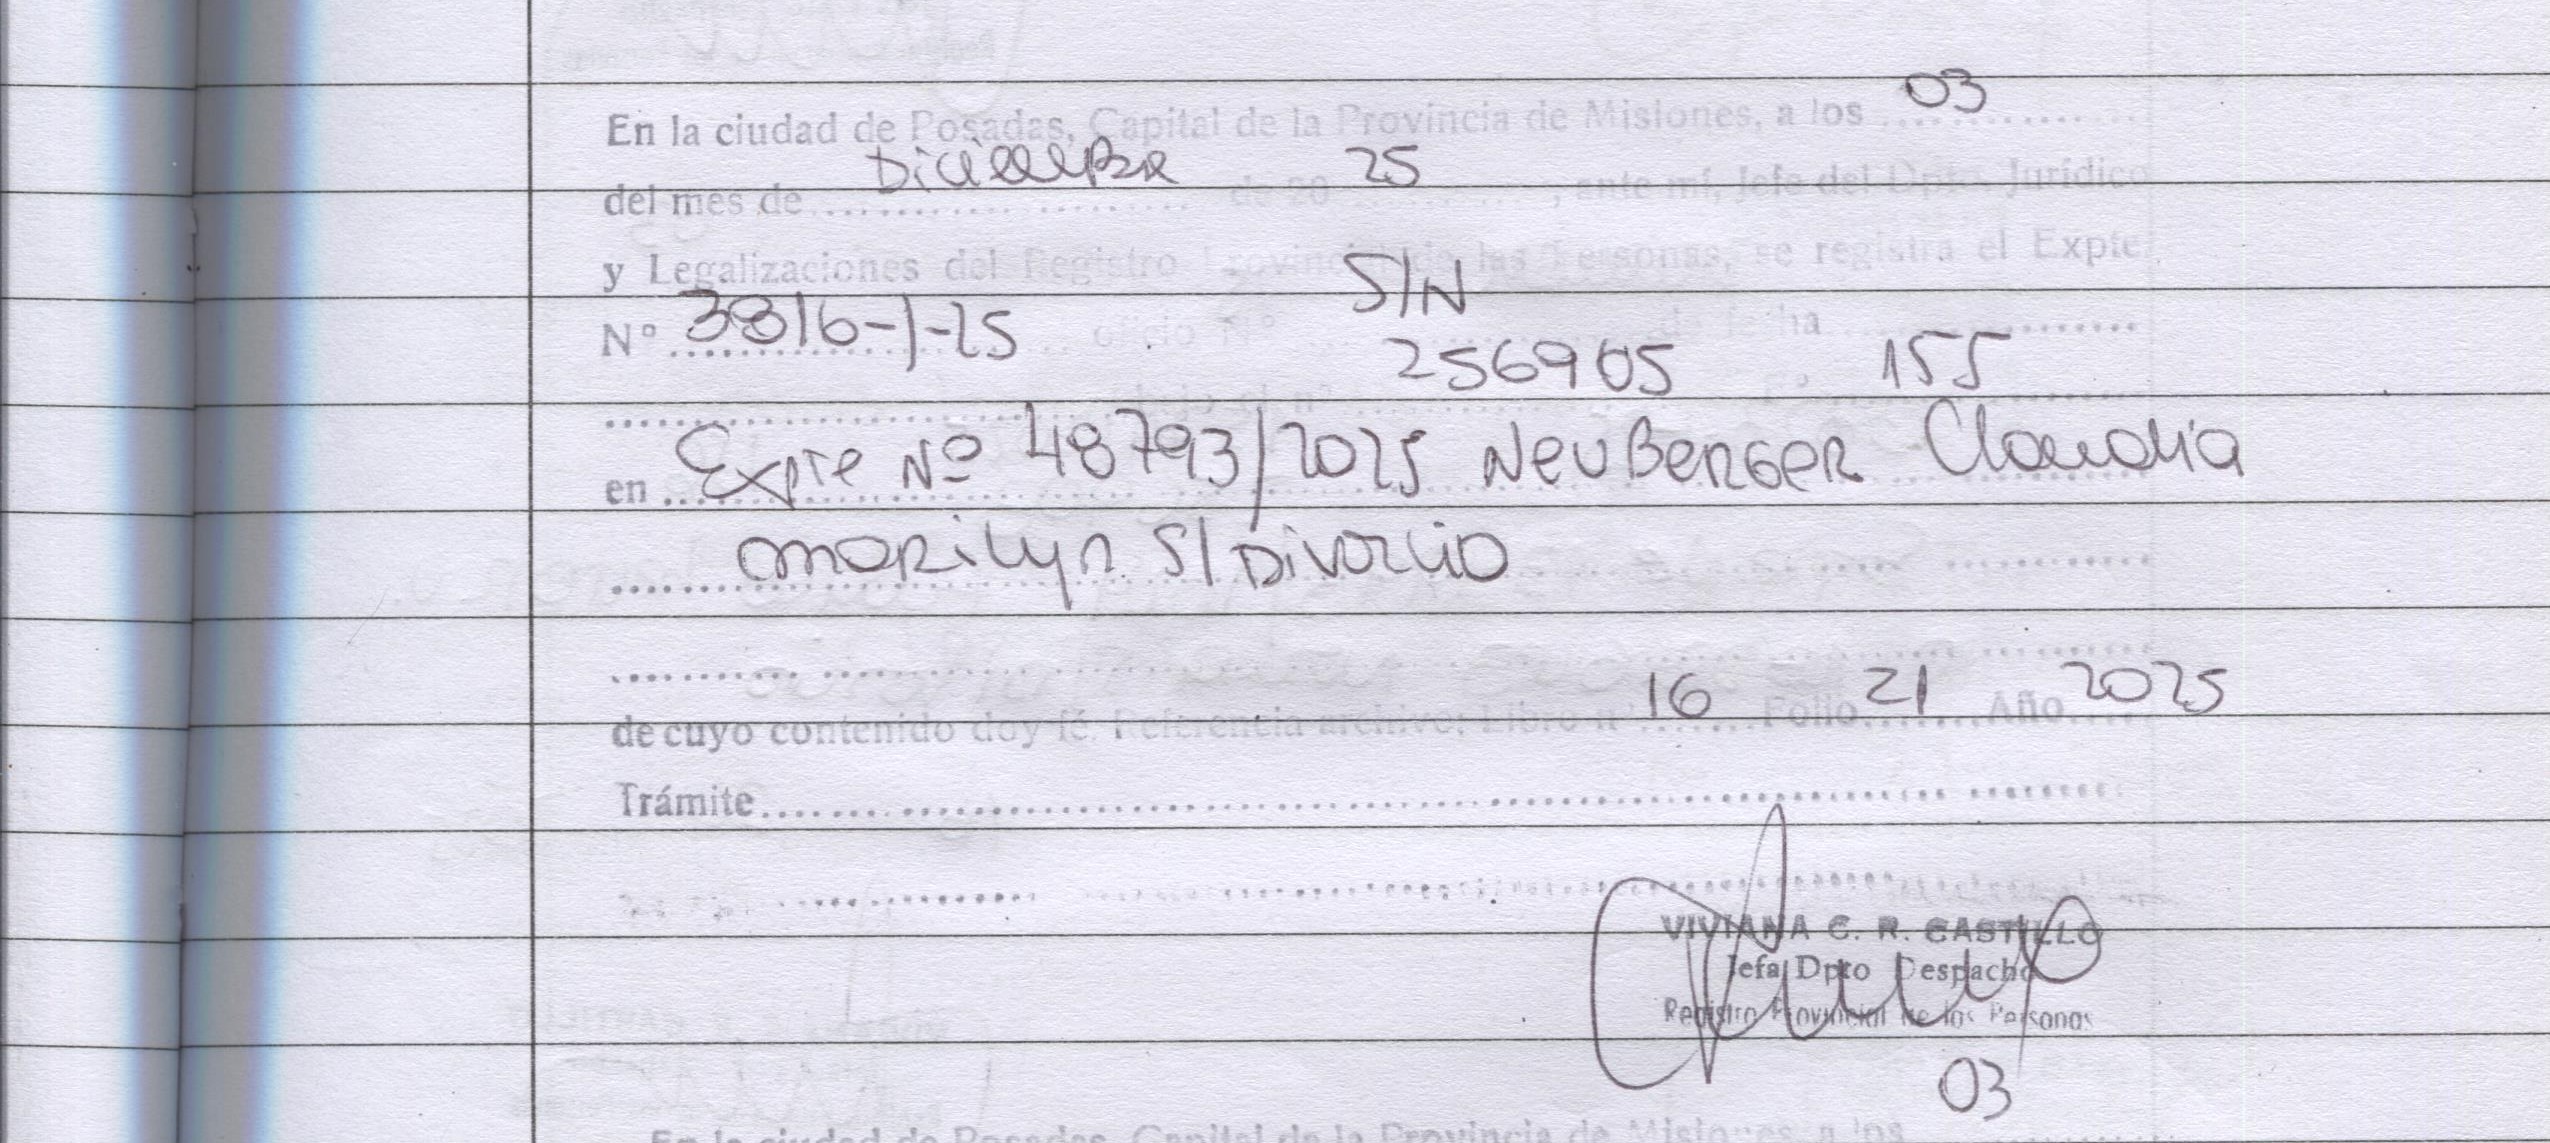 En la ciudad de Posadas, Capital de la Provincia de Misiones, a los 03
del mes de Diciembre de 20 25, ante mí, Jefe del Dpto. Jurídico
y Legalizaciones del Registro Provincial de las Personas, se registra el Expte.
N° 3816-J-25 oficio N° S/N de fecha
bajo el n° 256905 F° 155
en Expte Nº 48793/2025 NeuBerger Claudia
marilyn S/Divorcio
de cuyo contenido doy fé. Referencia archivo: Libro n° 16 Folio 21 Año 2025
Trámite
VIVIANA C. R. CASTILLO
Jefa Dpto Despacho
Registro Provincial de las Personas
03
En la ciudad de Posadas, Capital de la Provincia de Misiones, a los